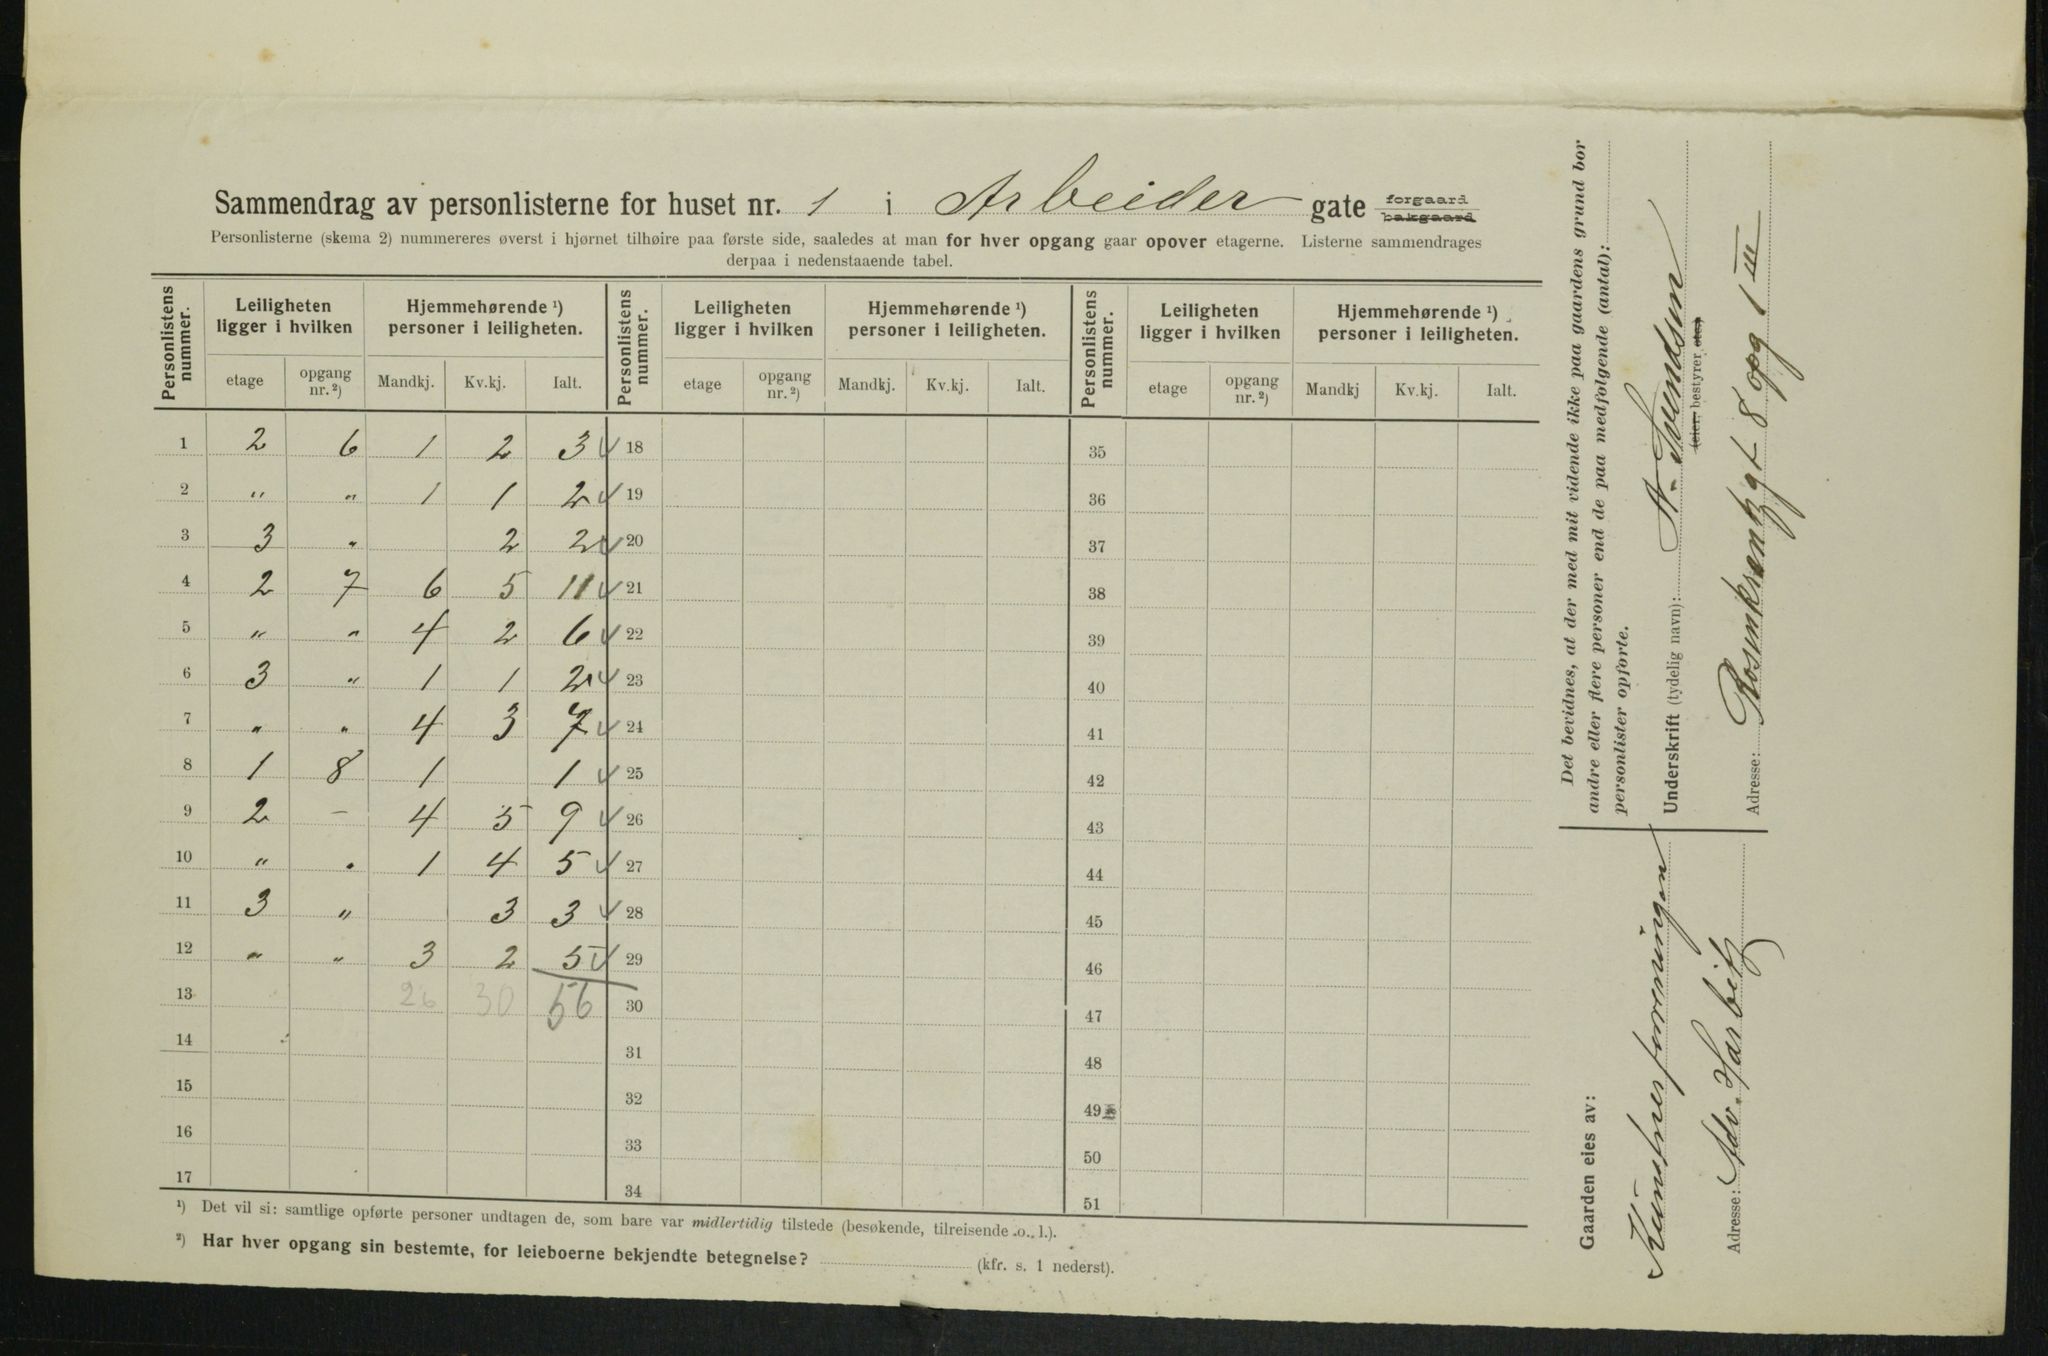 Sammendrag av personlisterne for huset nr. 1 i Arbeider gate forgaard bakgaard
Personlisterne (skema 2) nummereres øverst i hjørnet tilhøire paa første side, saaledes at man for hver opgang gaar opover etagerne. Listerne sammendrages
derpaa i nedenstaaende tabel.
Personlistens nummer. Leiligheten ligger i hvilken Hjemmehørende ¹) personer i leiligheten. Personlistens nummer. Leiligheten ligger i hvilken Hjemmehørende ¹) personer i leiligheten. Personlistens nummer. Leiligheten ligger i hvilken Hjemmehørende ¹) personer i leiligheten.
etage opgang nr. ²) Mandkj. Kv.kj. Ialt. etage opgang nr. ²) Mandkj. Kv.kj. Ialt. etage opgang nr. ²) Mandkj Kv.kj. Ialt.
1 2 6 1 2 3 18 35
2 " " 1 1 2 19 36
3 3 " 2 2 20 37
4 2 7 6 5 11 21 38
5 " " 4 2 6 22 39
6 3 " 1 1 2 23 40
7 " " 4 3 7 24 41
8 1 8 1 1 25 42
9 2 – 4 5 9 26 43
10 " " 1 4 5 27 44
11 3 " 3 3 28 45
12 " " 3 2 5 29 46
13 26 30 56 30 47
14 31 48
15 32 49
16 33 50
17 34 51
¹) Det vil si: samtlige opførte personer undtagen de, som bare var midlertidig tilstede (besøkende, tilreisende o. l.).
²) Har hver opgang sin bestemte, for leieboerne bekjendte betegnelse? (kfr. s. 1 nederst).
Det bevidnes, at der med mit vidende ikke paa gaardens grund bor
andre eller flere personer end de paa medfølgende (antal):
personlister opførte.
Underskrift (tydelig navn): N. Svendsen
(eier, bestyrer etc.)
Adresse: Rosenkrantzgt 8 opg 1 III
Gaarden eies av:
Kunstnerforeningen
Adresse: Adv. Harbitz